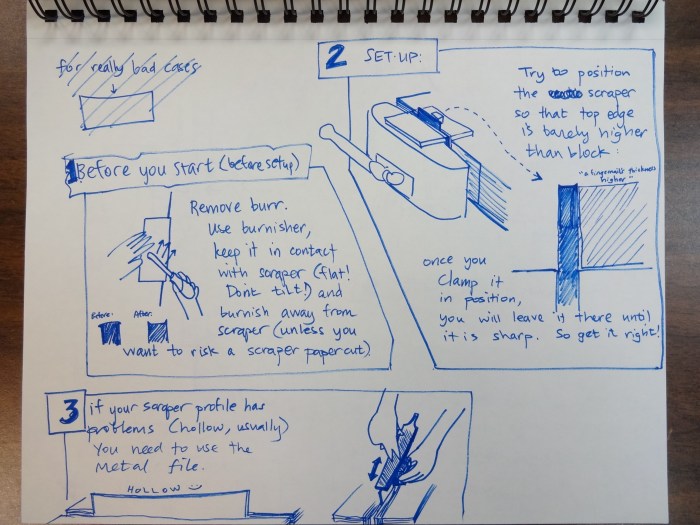 for really bad cases
1 Before you start (before setup)
Remove burr.
Use burnisher,
keep it in contact
with scraper (flat!
Dont tilt!) and
burnish away from
scraper (unless you
want to risk a scraper papercut)
Before:
After:
2 SET-UP:
Try to position
the scraper
so that top edge
is barely higher
than block:
"a fingernail's thickness
higher"
once you
clamp it
in position,
you will leave it there until
it is sharp. So get it right!
3 if your scraper profile has
problems (hollow, usually)
You need to use the
metal file.
HOLLOW